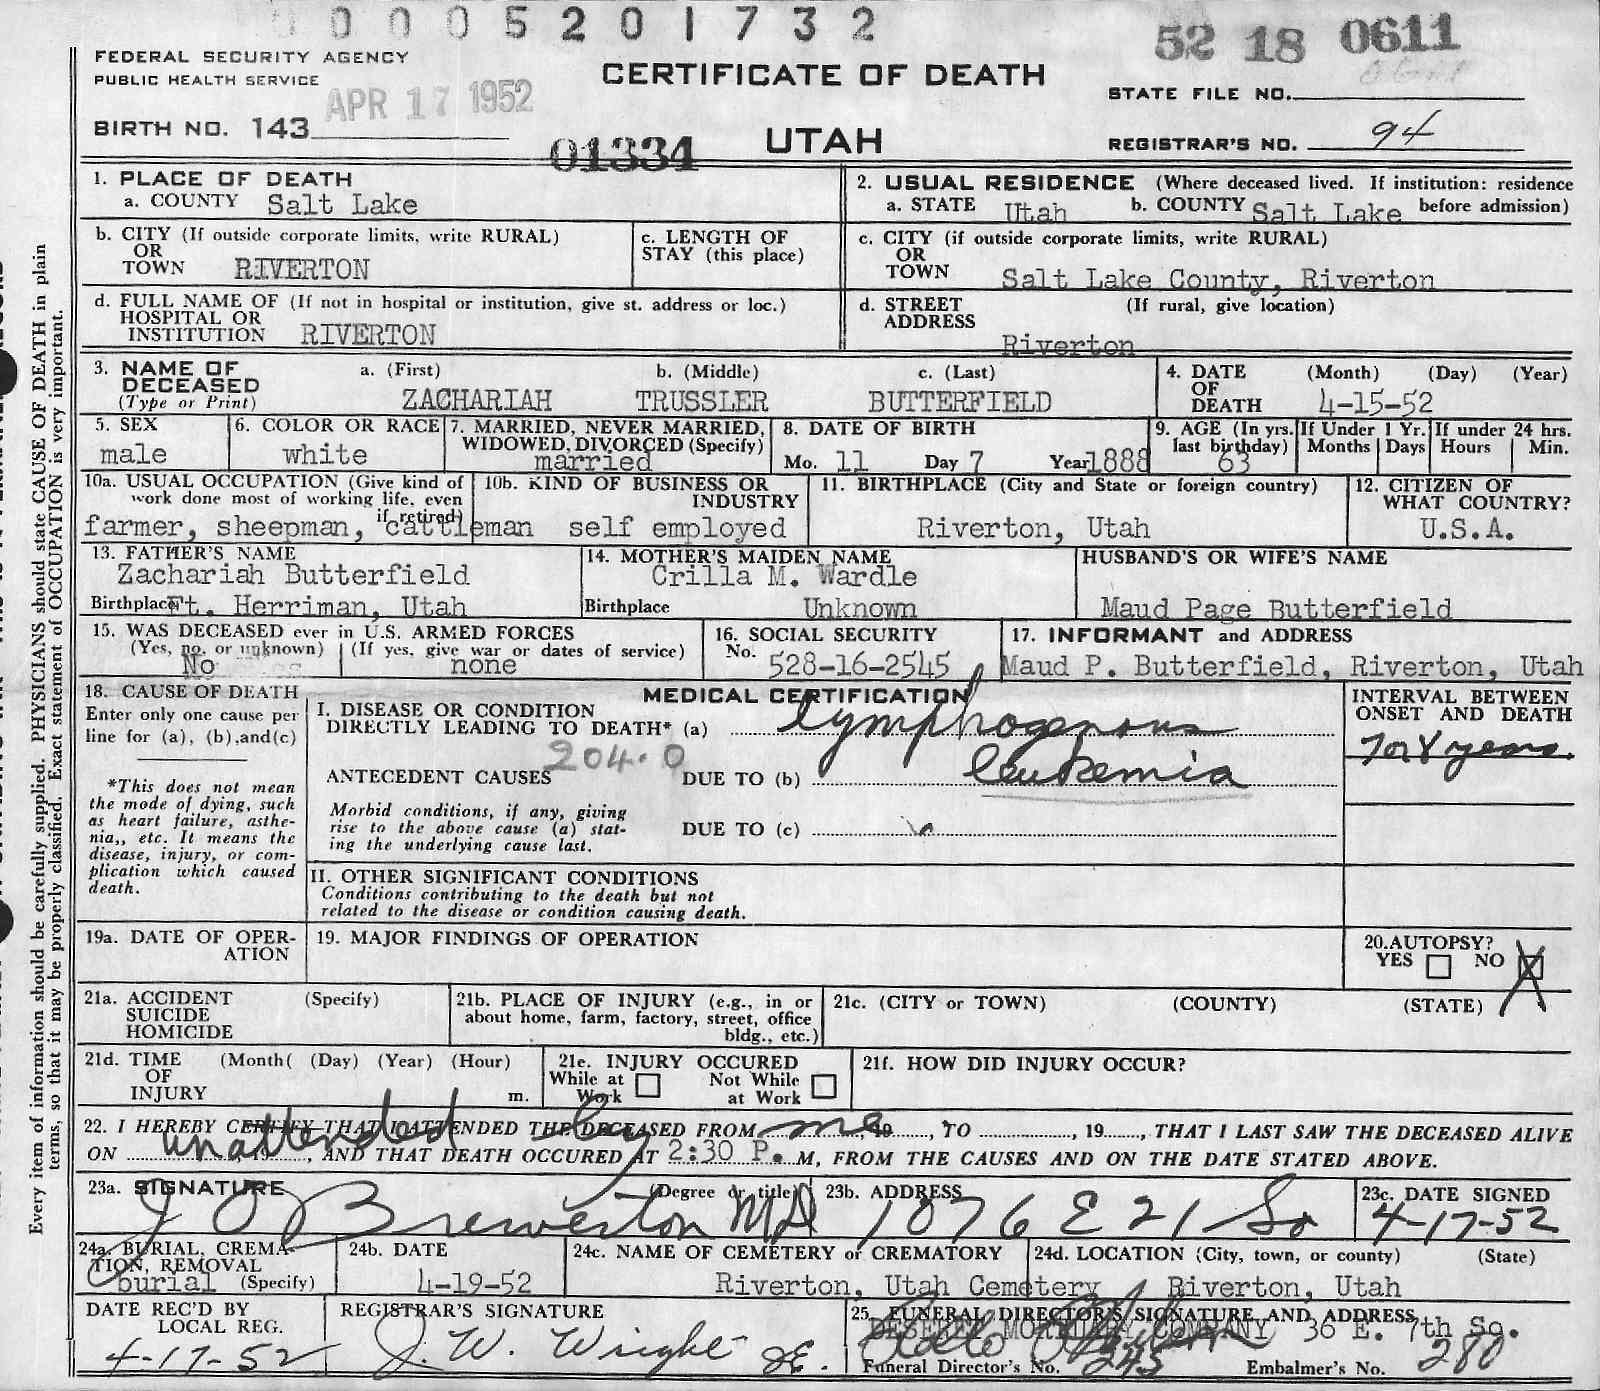 0 0 0 5 2 0 1 7 3 2
52 18 0611
FEDERAL SECURITY AGENCY
PUBLIC HEALTH SERVICE
APR 17 1952
CERTIFICATE OF DEATH
STATE FILE NO.
BIRTH NO. 143
01334
UTAH
REGISTRAR'S NO. 94
1. PLACE OF DEATH
a. COUNTY Salt Lake
2. USUAL RESIDENCE (Where deceased lived. If institution: residence before admission)
a. STATE Utah b. COUNTY Salt Lake
b. CITY (If outside corporate limits, write RURAL)
OR
TOWN RIVERTON
c. LENGTH OF
STAY (this place)
c. CITY (if outside corporate limits, write RURAL)
OR
TOWN Salt Lake County, Riverton
d. FULL NAME OF (If not in hospital or institution, give st. address or loc.)
HOSPITAL OR
INSTITUTION RIVERTON
d. STREET (If rural, give location)
ADDRESS
Riverton
3. NAME OF
DECEASED
(Type or Print)
a. (First) b. (Middle) c. (Last)
ZACHARIAH TRUSSLER BUTTERFIELD
4. DATE (Month) (Day) (Year)
OF
DEATH 4-15-52
5. SEX
male
6. COLOR OR RACE
white
7. MARRIED, NEVER MARRIED,
WIDOWED, DIVORCED (Specify)
married
8. DATE OF BIRTH
Mo. 11 Day 7 Year 1888
9. AGE (In yrs.
last birthday)
63
If Under 1 Yr.
Months Days
If under 24 hrs.
Hours Min.
10a. USUAL OCCUPATION (Give kind of
work done most of working life, even
if retired)
farmer, sheepman, cattleman
10b. KIND OF BUSINESS OR
INDUSTRY
self employed
11. BIRTHPLACE (City and State or foreign country)
Riverton, Utah
12. CITIZEN OF
WHAT COUNTRY?
U.S.A.
13. FATHER'S NAME
Zachariah Butterfield
Birthplace Ft. Herriman, Utah
14. MOTHER'S MAIDEN NAME
Crilla M. Wardle
Birthplace Unknown
HUSBAND'S OR WIFE'S NAME
Maud Page Butterfield
15. WAS DECEASED ever in U.S. ARMED FORCES
(Yes, no, or unknown) (If yes, give war or dates of service)
No none
16. SOCIAL SECURITY
No. 528-16-2545
17. INFORMANT and ADDRESS
Maud P. Butterfield, Riverton, Utah
18. CAUSE OF DEATH
Enter only one cause per
line for (a), (b), and (c)
*This does not mean
the mode of dying, such
as heart failure, asthe-
nia,, etc. It means the
disease, injury, or com-
plication which caused
death.
MEDICAL CERTIFICATION
I. DISEASE OR CONDITION
DIRECTLY LEADING TO DEATH* (a) lymphogenous
204.0
ANTECEDENT CAUSES DUE TO (b) leukemia
Morbid conditions, if any, giving
rise to the above cause (a) stat-
ing the underlying cause last.
DUE TO (c)
INTERVAL BETWEEN
ONSET AND DEATH
7 or 8 years.
II. OTHER SIGNIFICANT CONDITIONS
Conditions contributing to the death but not
related to the disease or condition causing death.
19a. DATE OF OPER-
ATION
19. MAJOR FINDINGS OF OPERATION
20. AUTOPSY?
YES NO X
21a. ACCIDENT (Specify)
SUICIDE
HOMICIDE
21b. PLACE OF INJURY (e.g., in or
about home, farm, factory, street, office
bldg., etc.)
21c. (CITY or TOWN) (COUNTY) (STATE)
21d. TIME (Month( (Day) (Year) (Hour)
OF
INJURY m.
21e. INJURY OCCURED
While at Work Not While at Work
21f. HOW DID INJURY OCCUR?
22. I HEREBY CERTIFY THAT I ATTENDED THE DECEASED FROM , 19 , TO , 19 , THAT I LAST SAW THE DECEASED ALIVE
unattended by me
ON , 19 , AND THAT DEATH OCCURED AT 2:30 P. M, FROM THE CAUSES AND ON THE DATE STATED ABOVE.
23a. SIGNATURE (Degree or title)
J O Brewerton MD
23b. ADDRESS
1076 E 21 So
23c. DATE SIGNED
4-17-52
24a. BURIAL, CREMA-
TION, REMOVAL
burial (Specify)
24b. DATE
4-19-52
24c. NAME OF CEMETERY or CREMATORY
Riverton, Utah Cemetery
24d. LOCATION (City, town, or county) (State)
Riverton, Utah
DATE REC'D BY
LOCAL REG.
4-17-52
REGISTRAR'S SIGNATURE
J. W. Wright
25. FUNERAL DIRECTOR'S SIGNATURE AND ADDRESS
DESERET MORTUARY COMPANY 36 E. 7th So.
Funeral Director's No. 245 Embalmer's No. 280
Every item of information should be carefully supplied. PHYSICIANS should state CAUSE OF DEATH in plain
terms, so that it may be properly classified. Exact statement of OCCUPATION is very important.